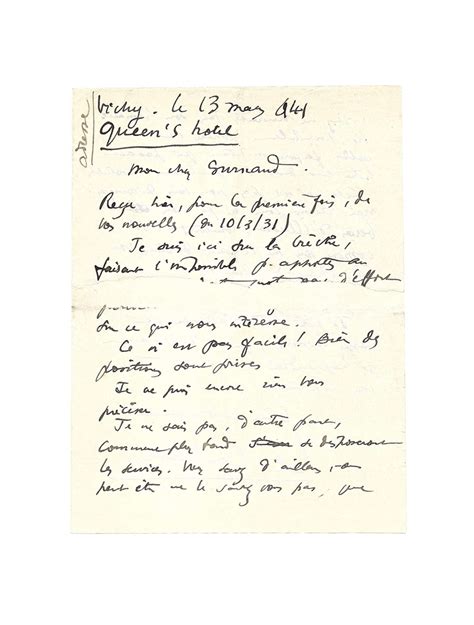 adresse
Vichy. le 13 mars 1941
Queen's hotel
Mon cher
Reçu hier, pour la première fois, de
vos nouvelles (du 10/3/31)
Je suis ici sur la brèche,
faisant l'impossible p. apporter au
pas d'effort
sur ce qui nous intéresse.
Ce n'est pas facile! Bien des
positions sont prises
Je ne puis encore rien vous
préciser.
Je ne sais pas, d'autre part,
comment plus tard se
les services. Vous savez d'ailleurs, ou
peut être ne le savez vous pas, que